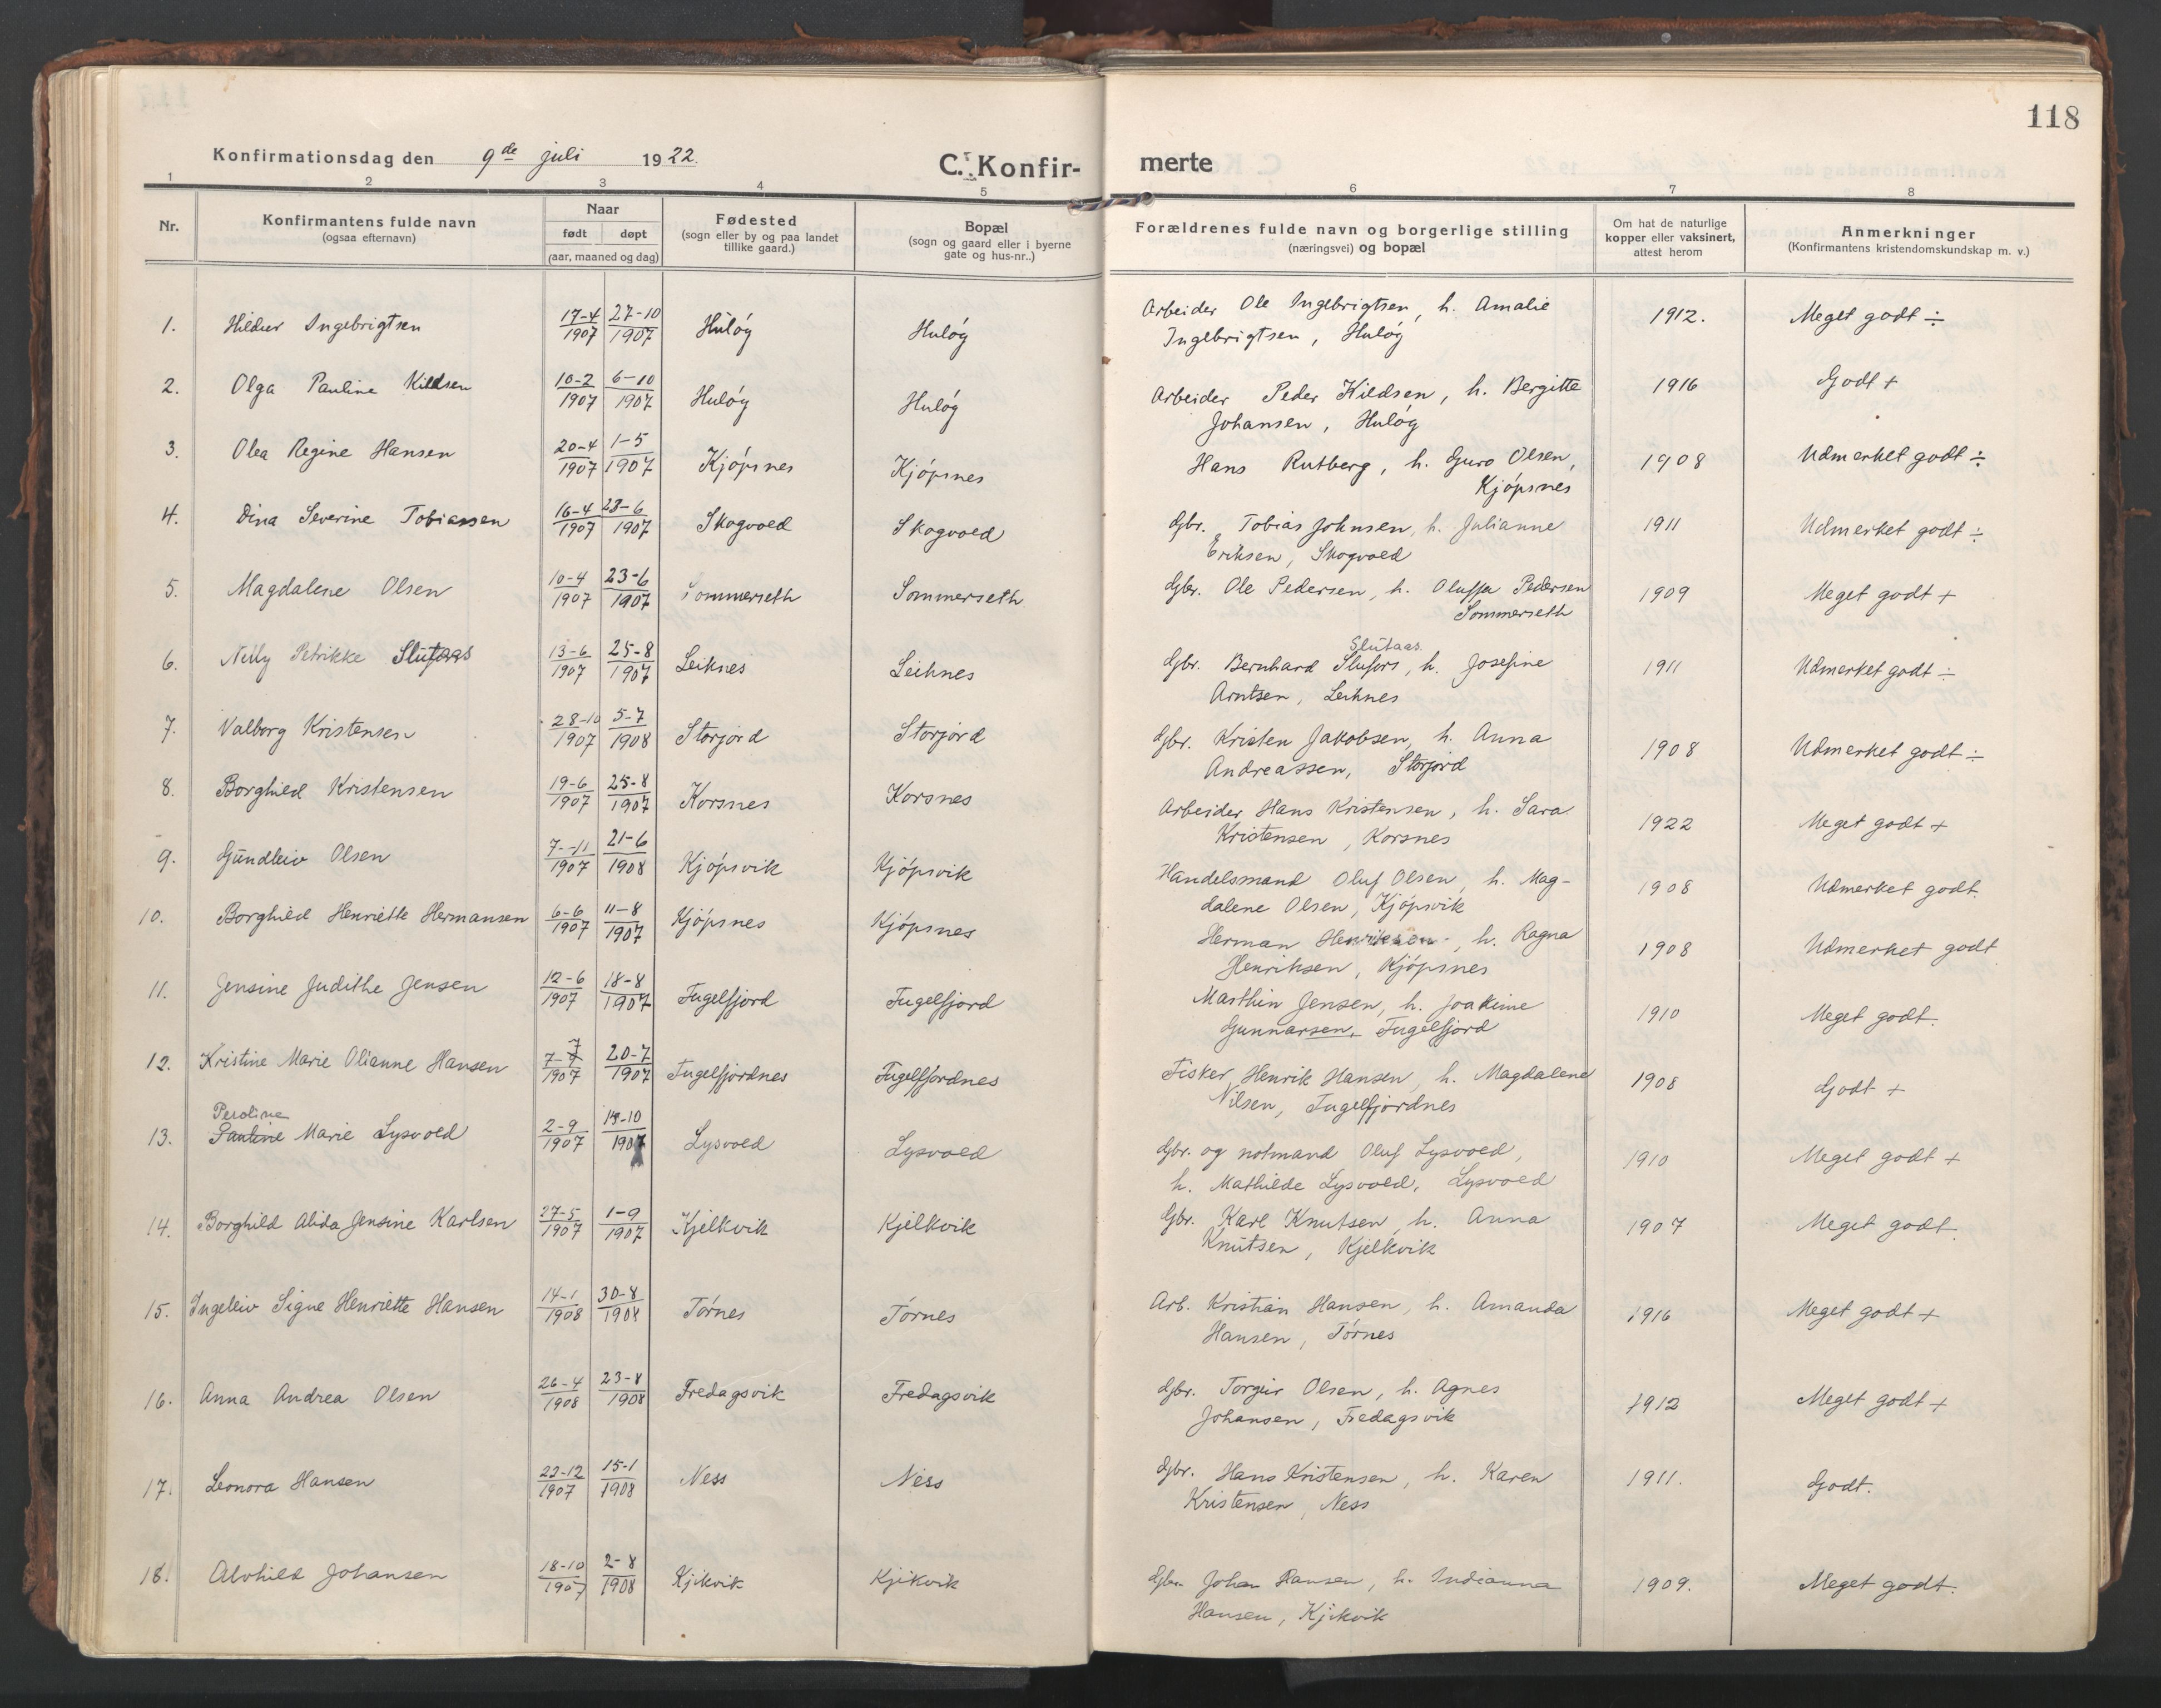 118
Konfirmationsdag den 9de juli 1922.
C. Konfirmerte
1 2 3 4 5 6 7 8
Nr.
Konfirmantens fulde navn
(ogsaa efternavn)
Naar
født døpt
(aar, maaned og dag)
Fødested
(sogn eller by og paa landet
tillike gaard.)
Bopæl
(sogn og gaard eller i byerne
gate og hus-nr..)
Forældrenes fulde navn og borgerlige stilling
(næringsvei) og bopæl
Om hat de naturlige
kopper eller vaksinert,
attest herom
Anmerkninger
(Konfirmantens kristendomskundskap m. v.)
1. Hildur Ingebrigtsen 17-4 1907 27-10 1907 Huløy Huløy Arbeider Ole Ingebrigtsen, h. Amalie 1912. Meget godt ÷
Ingebrigtsen, Huløy
2. Olga Pauline Kildsen 10-2 1907 6-10 1907 Huløy Huløy Arbeider Peder Kildsen, h. Bergitte 1916 Godt +
Johansen, Huløy
3. Olea Regine Hansen 20-4 1907 1-5 1907 Kjøpsnes Kjøpsnes Hans Rutberg, h. Guro Olsen, 1908 Udmerket godt ÷
Kjøpsnes
4. Dina Severine Tobiassen 16-4 1907 23-6 1907 Skogvold Skogvold Gbr. Tobias Johnsen, h. Julianne 1911 Udmerket godt ÷
Eriksen, Skogvold
5. Magdalene Olsen 10-4 1907 23-6 1907 Sommerseth Sommerseth Gbr. Ole Pedersen, h. Oluffa Pedersen 1909 Meget godt +
Sommerseth
6. Nelly Petrikke Slutaas 13-6 1907 25-8 1907 Leiknes Leiknes Gbr. Bernhard Slufors, h. Josefine 1911 Udmerket godt ÷
Slutaas
Arntsen, Leiknes
7. Valborg Kristensen 28-10 1907 5-7 1908 Storjord Storjord Gbr. Kristen Jakobsen, h. Anna 1908 Udmerket godt ÷
Andreassen, Storjord
8. Borghild Kristensen 19-6 1907 25-8 1907 Korsnes Korsnes Arbeider Hans Kristensen, h. Sara 1922 Meget godt +
Kristensen, Korsnes
9. Gundleiv Olsen 7-11 1907 21-6 1908 Kjøpsvik Kjøpsvik Handelsmand Oluf Olsen, h. Mag- 1908 Udmerket godt.
dalene Olsen, Kjøpsvik
10. Borghild Henriette Hermansen 6-6 1907 11-8 1907 Kjøpsnes Kjøpsnes Herman Henriksen, h. Ragna 1908 Udmerket godt
Henriksen, Kjøpsnes
11. Jensine Judithe Jensen 12-6 1907 18-8 1907 Fugelfjord Fugelfjord Marthin Jensen, h. Joakime 1910 Meget godt.
Gunnarsen, Fugelfjord
12. Kristine Marie Olianne Hansen 7-7 1907 20-7 1907 Fugelfjordnes Fugelfjordnes Fisker Henrik Hansen, h. Magdalene 1908 Godt +
Nilsen, Fugelfjordnes
Peroline
13. Pauline Marie Lysvold 2-9 1907 19-10 1907 Lysvold Lysvold Gbr. og notmand Oluf Lysvold, 1910 Meget godt +
h. Mathilde Lysvold, Lysvold
14. Borghild Alida Jensine Karlsen 27-5 1907 1-9 1907 Kjelkvik Kjelkvik Gbr. Karl Knutsen, h. Anna 1907 Meget godt.
Knutsen, Kjelkvik
15. Ingeleiv Signe Henriette Hansen 14-1 1908 30-8 1908 Tørnes Tørnes Arb. Kristian Hansen, h. Amanda 1916 Meget godt +
Hansen, Tørnes
16. Anna Andrea Olsen 26-4 1908 23-8 1908 Fredagsvik Fredagsvik Gbr. Torgeir Olsen, h. Agnes 1912 Meget godt +
Johansen, Fredagsvik
17. Leonora Hansen 23-12 1907 15-1 1908 Ness Ness Gbr. Hans Kristensen, h. Karen 1911. Godt.
Kristensen, Ness
18. Alvhild Johansen 18-10 1907 2-8 1908 Kjikvik Kjikvik Gbr. Johan Hansen, h. Indianna 1909. Meget godt.
Hansen, Kjikvik